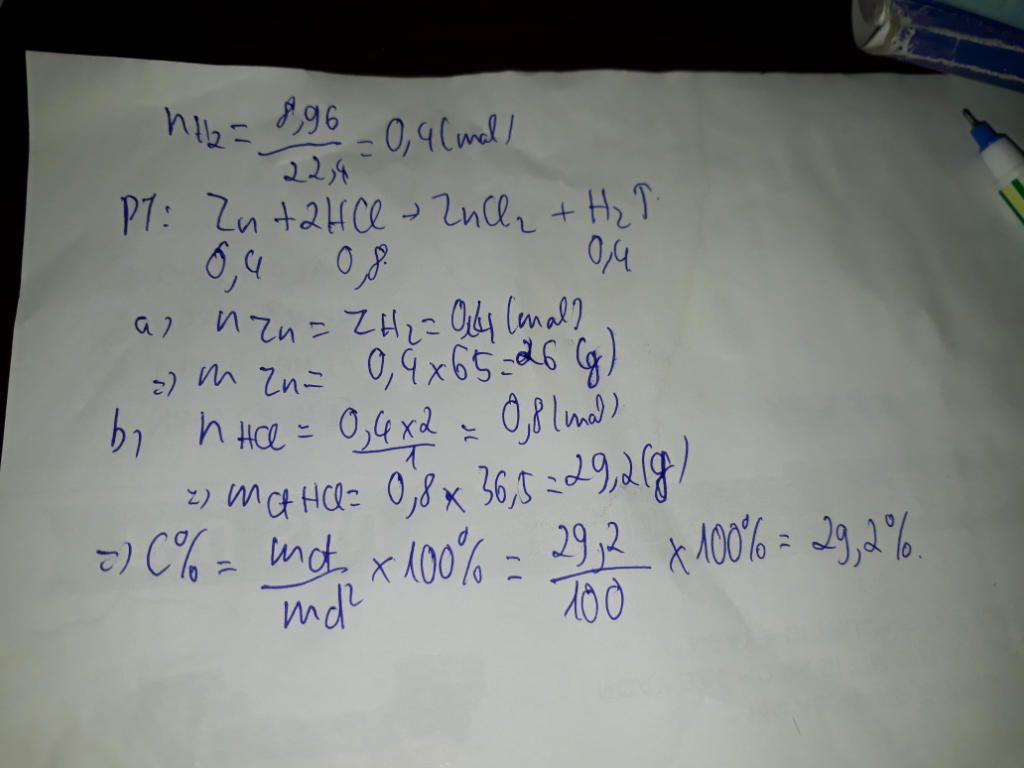 nH2 = 8,96 / 22,4 = 0,4 (mol)
PT: Zn + 2HCl → ZnCl2 + H2↑
0,4 0,8 0,4
a) n Zn = ZH2 = 0,4 (mol)
=) m Zn = 0,4 x 65 = 26 (g)
b, n HCl = 0,4 x 2 / 1 = 0,8 (mol)
=) mct HCl = 0,8 x 36,5 = 29,2 (g)
=) C% = mct / md² x 100% = 29,2 / 100 x 100% = 29,2%.